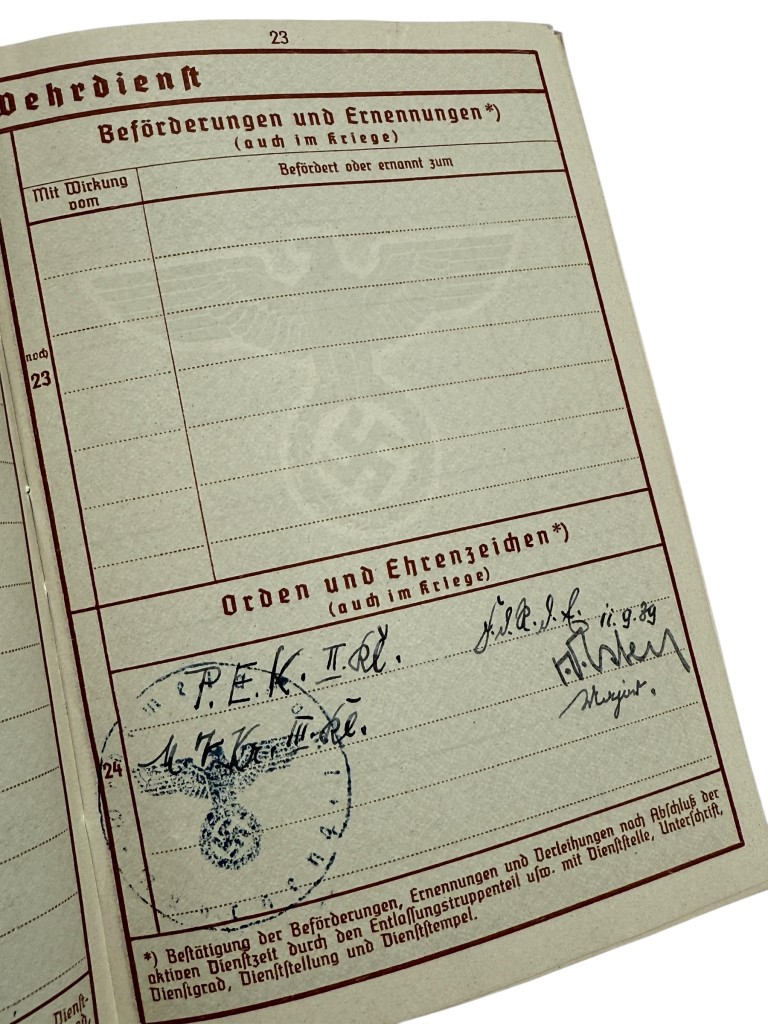 23
Wehrdienst
Beförderungen und Ernennungen*)
(auch im Kriege)
Mit Wirkung
vom
Befördert oder ernannt zum
noch
23
Orden und Ehrenzeichen*)
(auch im Kriege)
P. E. K. II. Kl.
11.9.39
Major.
III. Kl.
24
*) Bestätigung der Beförderungen, Ernennungen und Verleihungen nach Abschluß der
aktiven Dienstzeit durch den Entlassungstruppenteil usw. mit Dienststelle, Unterschrift,
Dienstgrad, Dienststellung und Dienststempel.
Dienst-